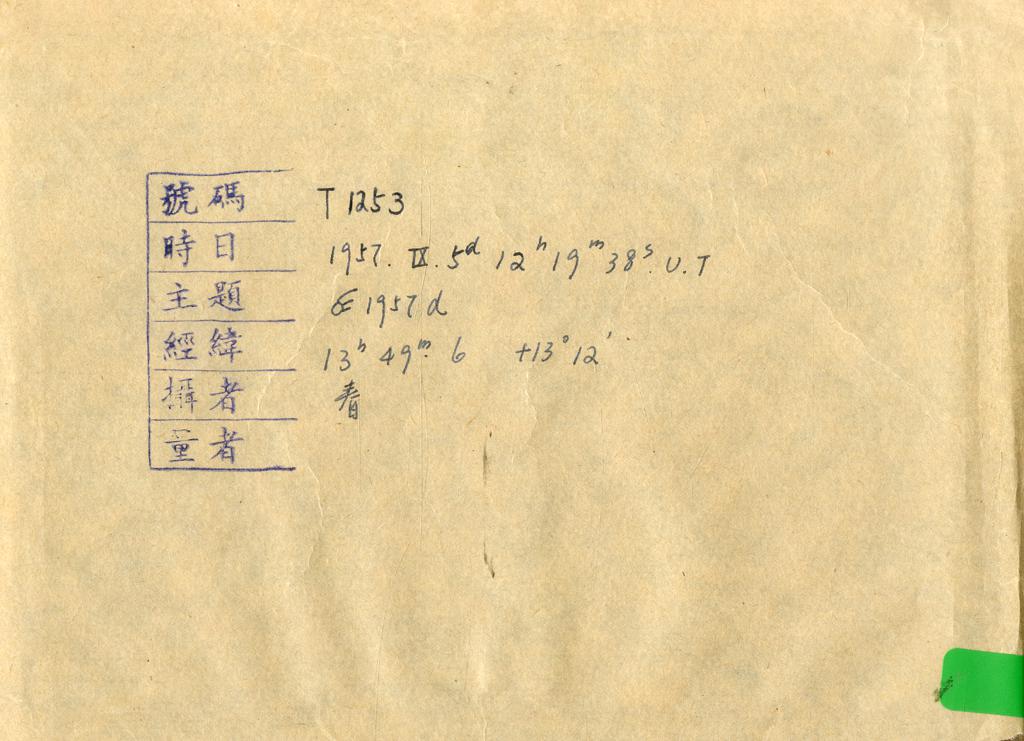 號碼 T 1253
時日 1957. IX. 5ᵈ 12ʰ 19ᵐ 38ˢ. U.T
主題 ☄ 1957 d
經緯 13ʰ 49ᵐ. 6 +13° 12′
攝者 春
量者